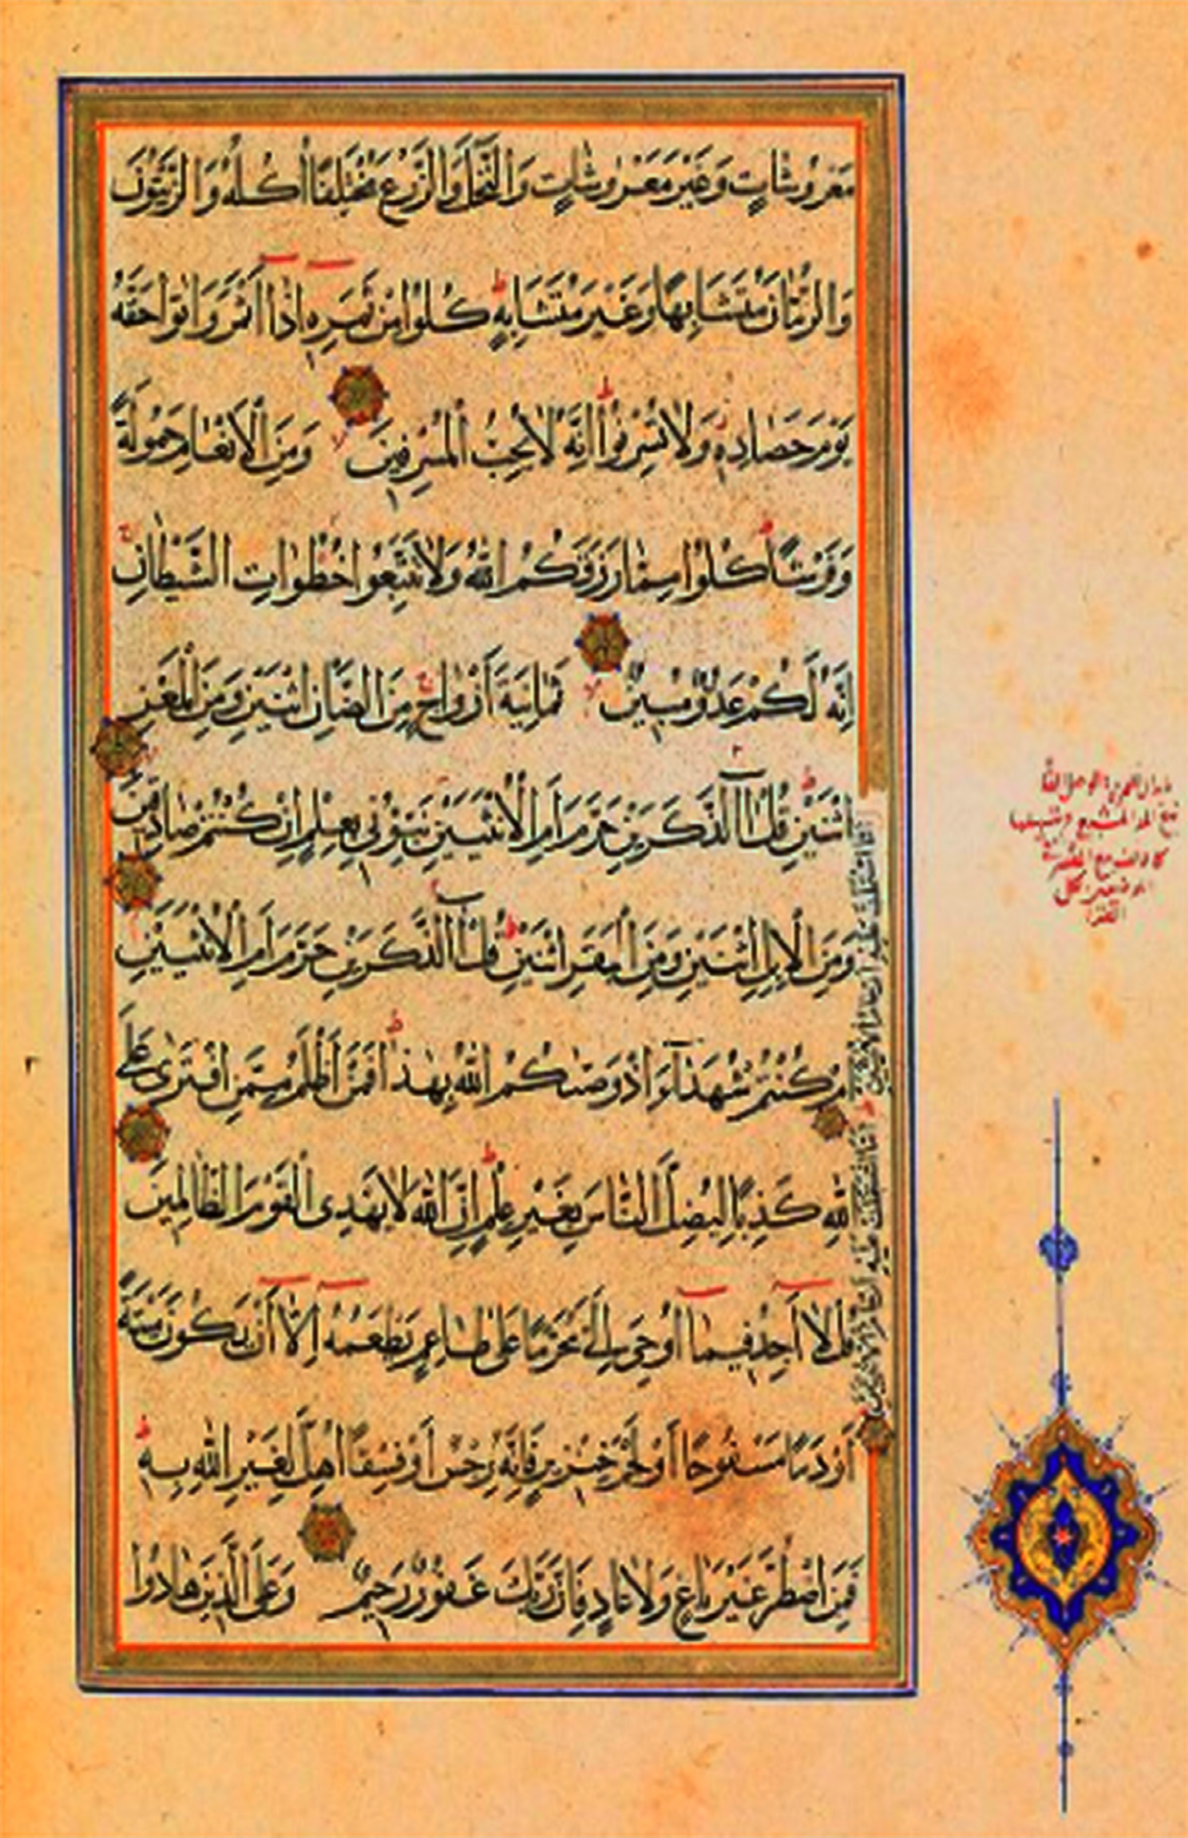 مَعْرُوشَاتٍ وَغَيْرَ مَعْرُوشَاتٍ وَالنَّخْلَ وَالزَّرْعَ مُخْتَلِفًا أُكُلُهُ وَالزَّيْتُونَ
وَالرُّمَّانَ مُتَشَابِهًا وَغَيْرَ مُتَشَابِهٍ كُلُوا مِنْ ثَمَرِهِ إِذَا أَثْمَرَ وَآتُوا حَقَّهُ
يَوْمَ حَصَادِهِ وَلَا تُسْرِفُوا إِنَّهُ لَا يُحِبُّ الْمُسْرِفِينَ وَمِنَ الْأَنْعَامِ حَمُولَةً
وَفَرْشًا كُلُوا مِمَّا رَزَقَكُمُ اللّٰهُ وَلَا تَتَّبِعُوا خُطُوَاتِ الشَّيْطَانِ
إِنَّهُ لَكُمْ عَدُوٌّ مُبِينٌ ثَمَانِيَةَ أَزْوَاجٍ مِنَ الضَّأْنِ اثْنَيْنِ وَمِنَ الْمَعْزِ
اثْنَيْنِ قُلْ آلذَّكَرَيْنِ حَرَّمَ أَمِ الْأُنْثَيَيْنِ نَبِّئُونِي بِعِلْمٍ إِنْ كُنْتُمْ صَادِقِينَ
أَمَّا اشْتَمَلَتْ عَلَيْهِ أَرْحَامُ الْأُنْثَيَيْنِ
وَمِنَ الْإِبِلِ اثْنَيْنِ وَمِنَ الْبَقَرِ اثْنَيْنِ قُلْ آلذَّكَرَيْنِ حَرَّمَ أَمِ الْأُنْثَيَيْنِ
أَمَّا اشْتَمَلَتْ عَلَيْهِ أَرْحَامُ الْأُنْثَيَيْنِ
أَمْ كُنْتُمْ شُهَدَآءَ إِذْ وَصَّاكُمُ اللّٰهُ بِهٰذَا فَمَنْ أَظْلَمُ مِمَّنِ افْتَرَىٰ عَلَى
اللّٰهِ كَذِبًا لِيُضِلَّ النَّاسَ بِغَيْرِ عِلْمٍ إِنَّ اللّٰهَ لَا يَهْدِي الْقَوْمَ الظَّالِمِينَ
قُلْ لَا أَجِدُ فِيمَا أُوحِيَ إِلَيَّ مُحَرَّمًا عَلَىٰ طَاعِمٍ يَطْعَمُهُ إِلَّا أَنْ يَكُونَ مَيْتَةً
أَوْ دَمًا مَسْفُوحًا أَوْ لَحْمَ خِنْزِيرٍ فَإِنَّهُ رِجْسٌ أَوْ فِسْقًا أُهِلَّ لِغَيْرِ اللّٰهِ بِهِ
فَمَنِ اضْطُرَّ غَيْرَ بَاغٍ وَلَا عَادٍ فَإِنَّ رَبَّكَ غَفُورٌ رَحِيمٌ وَعَلَى الَّذِينَ هَادُوا